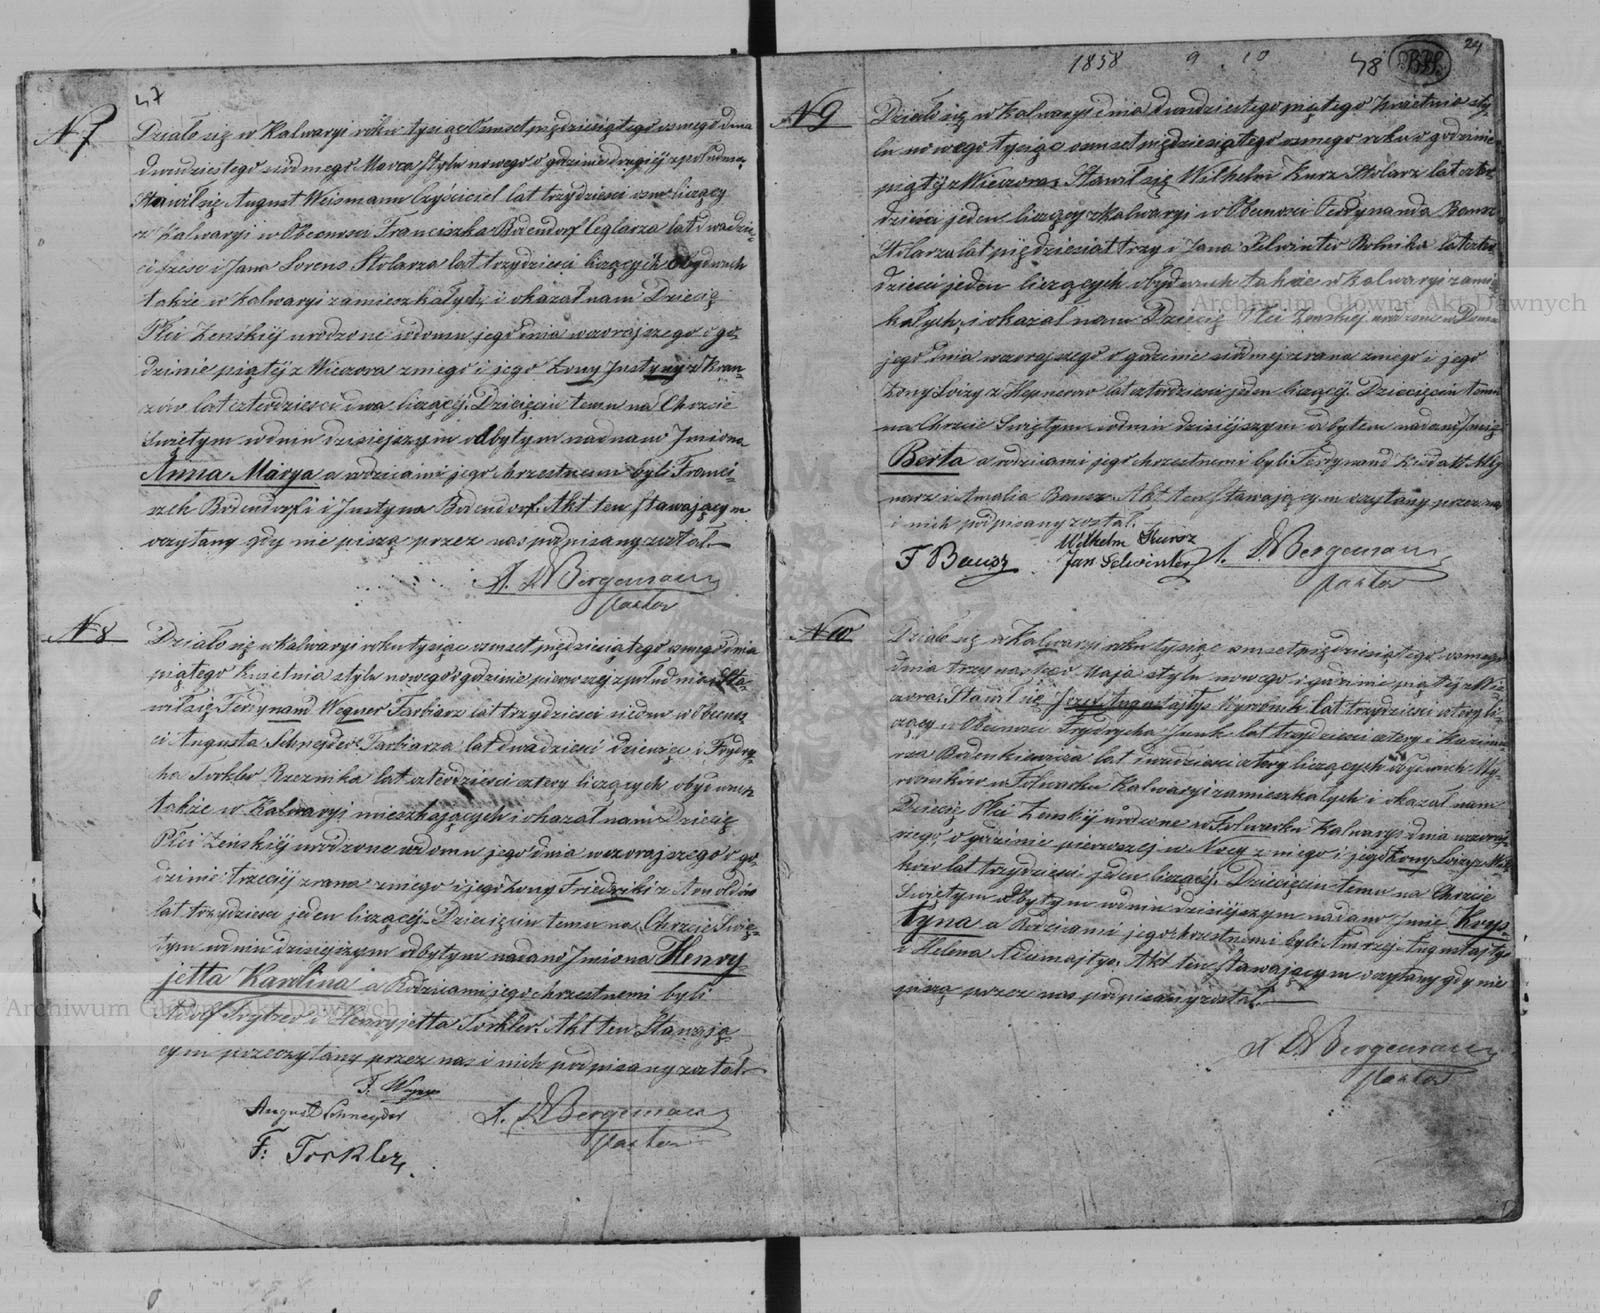 47
N 7
Działo się w Kalwaryi roku tysiąc Osmset pięćdziesiątego osmego dnia
dwudziestego siódmego Marca stylu nowego o godzinie drugiej z południa
Stawił się August Weismann Czyściciel lat trzydzieści osm liczący
z Kalwaryi w Obecności Franciszka Bodendorf Ceglarza lat dwadzie-
ści sześć i Jana Lorens Stolarza lat trzydzieści liczących obydwuch
także w Kalwaryi zamieszkałych, i okazał nam Dziecię
Płci Żeńskiej urodzone w domu jego dnia wczorajszego o go-
dzinie piątej z Wieczora z niego i jego Żony Justyny z Kran-
zów lat czterdzieści dwa liczącej. Dziecięciu temu na Chrzcie
Świętym w dniu dzisiejszym odbytym nadano Imiona
Anna Marya a rodzicami jego chrzestnemi byli Franci-
szek Bodendorf i Justyna Bodendorf. Akt ten stawającym
czytany gdy nie piszą przez nas podpisany został
A. D. Bergemann
Pastor
N 8
Działo się w Kalwaryi roku tysiąc osmset pięćdziesiątego osmego dnia
piątego Kwietnia stylu nowego o godzinie pierwszej z południa Sta-
wił się Ferdynand Wegner Farbiarz lat trzydzieści siedm w Obecnoś-
ci Augusta Schneyder Farbiarza lat dwadzieścia dziewięć i Frydry-
ka Torkler Rzeźnika lat czterdzieści cztery liczących obydwuch
także w Kalwaryi mieszkających i okazał nam Dziecię
Płci Żeńskiej urodzone w domu jego dnia wczorajszego o go-
dzinie trzeciej z rana z niego i jego Żony Friedryki z Arnoldów
lat trzydzieści jeden liczącej. Dziecięciu temu na Chrzcie Świę-
tym w dniu dzisiejszym odbytym nadano Imiona Henry-
jetta Karolina a Rodzicami jego chrzestnemi byli
Adolf i Henryjetta Torkler. Akt ten Stawają-
cym przeczytany przez nas i nich podpisany został
F. Wegner
August Schneyder
A. D. Bergemann
Pastor
F: Torkler
1858 9 . 10 48 24
N 9
Działo się w Kalwaryi dnia dwudziestego piątego Kwietnia sty-
lu nowego tysiąc osmset pięćdziesiątego osmego roku o godzinie
piątej z Wieczora, Stawił się Wilhelm Kurz Stolarz lat czter-
dzieści jeden liczący z Kalwaryi w Obecności Ferdynanda Bansz
Stolarza lat pięćdziesiąt trzy i Jana Selwinter Rolnika lat czter-
dzieści jeden liczących obydwuch także w Kalwaryi zamiesz-
kałych, i okazał nam Dziecię Płci Żeńskiej urodzone w Domu
jego dnia wczorajszego o godzinie siódmej z rana z niego i jego
Żony Loizy z Hepnerow lat czterdzieści jeden liczącej. Dziecięciu temu
na Chrzcie Świętym w dniu dzisiejszym odbytem nadano Imię
Berta a rodzicami jego chrzestnemi byli Ferdynand Młynarz
i Amalia Bansz. Akt ten stawającym czytany przez nas
i nich podpisany został.
Wilhelm Kurz
F Bansz Jan Selwinter A. D. Bergemann
Pastor
N 10
Działo się w Kalwaryi roku tysiąc osmset pięćdziesiątego osmego
dnia trzynastego Maja stylu nowego o godzinie piątej z Wie-
czora. Stawił się Jerzy Augustajtys Wyrobnik lat trzydzieści cztery li-
czący w Obecności Frydrycha Junk lat trzydzieści cztery i Kazimie-
rza Bodenkiewicza lat dwadzieścia cztery liczących obydwuch Wy-
robników w Folwarku Kalwaryi zamieszkałych i okazał nam
Dziecię Płci Żeńskiej urodzone w Folwarku Kalwaryi dnia wczoraj-
szego, o godzinie pierwszej w Nocy z niego i jego Żony Loizy z
lat trzydzieści jeden liczącej. Dziecięciu temu na Chrzcie
Świętym Odbytym w dniu dzisiejszym nadano Imię Krys-
tyna a Rodzicami jego chrzestnemi byli Andrzej Augustajtys
i Helena Adomajtys. Akt ten stawającym czytany gdy nie
piszą przez nas podpisany został.
A. D. Bergemann
Pastor
Archiwum Główne Akt Dawnych
Archiwum Główne Akt Dawnych